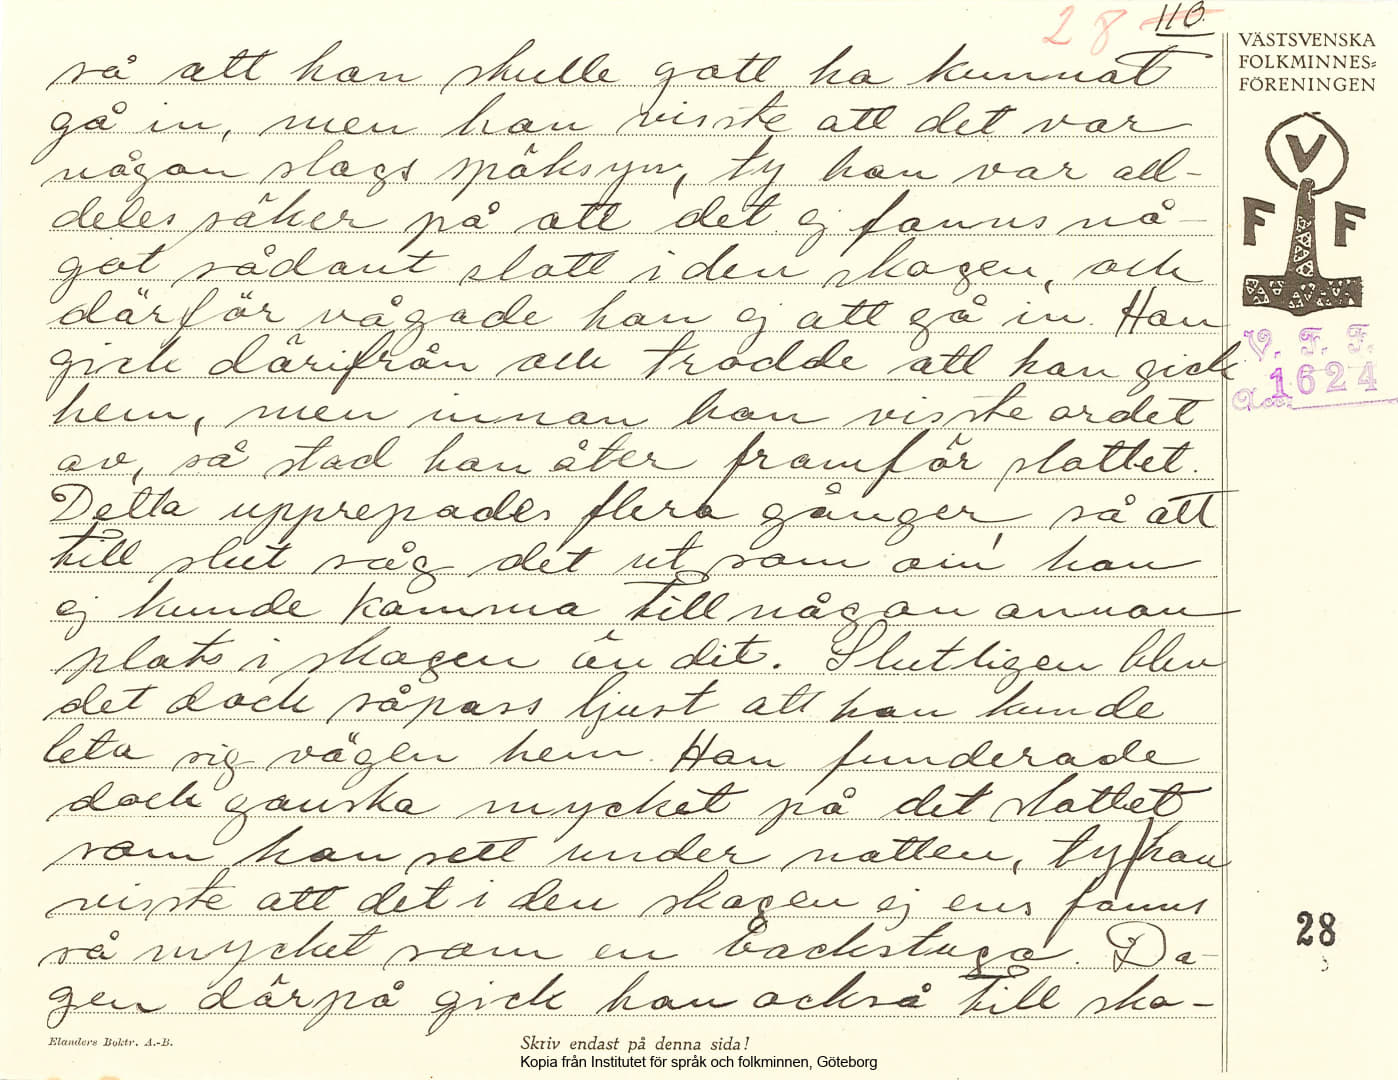 28 11B.
så att han skulle gott ha kunnat
gå in, men han visste att det var
någon slags spöksyn, ty han var all-
deles säker på att det ej fanns nå-
got sådant slott i den skogen, och
därför vågade han ej att gå in. Han
gick därifrån och trodde att han gick
hem, men innan han visste ordet
av, så stod han åter framför slottet.
Detta upprepades flera gånger, så att
till slut såg det ut som om han
ej kunde komma till någon annan
plats i skogen än dit. Slutligen blev
det dock såpass ljust att han kunde
leta sig vägen hem. Han funderade
dock ganska mycket på det slottet
som han sett under natten, ty han
visste att det i den skogen ej ens fanns
så mycket som en backstuga. Da-
gen därpå gick han också till sko-
VÄSTSVENSKA
FOLKMINNES=
FÖRENINGEN
V
F F
V. F. F.
Acc. 1624
28
Elanders Boktr. A.-B.
Skriv endast på denna sida!
Kopia från Institutet för språk och folkminnen, Göteborg